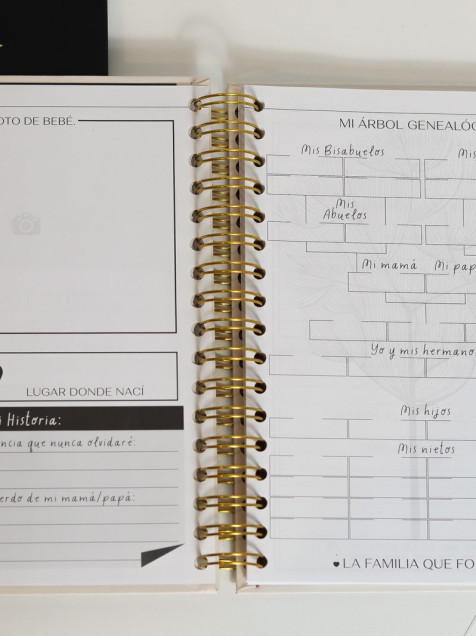 OTO DE BEBÉ.
LUGAR DONDE NACÍ
Historia:
ncia que nunca olvidaré:
erdo de mi mamá/papá:
MI ÁRBOL GENEALÓG
Mis Bisabuelos
Mis
Mis
Abuelos
Mi mamá Mi pap
Yo y mis hermano
Mis hijos
Mis nietos
LA FAMILIA QUE FO